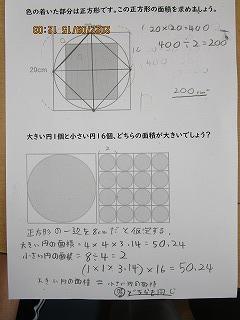 2022/09/15 12:03
色の着いた部分は正方形です。この正方形の面積を求めましょう。
20×20=400
400÷2=200
20cm
200cm²
大きい円1個と小さい円16個、どちらの面積が大きいでしょう？
正方形の一辺を8cmだと仮定する。
大きい円の面積=4×4×3.14=50.24
小さい円の面積=8÷4=2
(1×1×3.14)×16=50.24
大きい円の面積 = 小さい円の面積
どちらも同じ